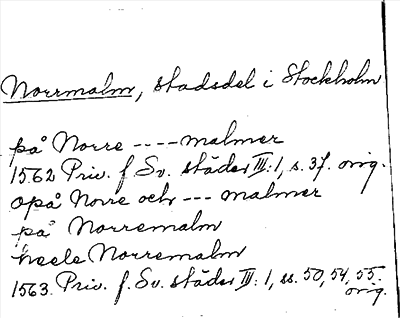 Norrmalm, stadsdel i Stockholm
på Norre ---- malmer
1562 Priv. f. Sv. städer III:1, s. 37. orig.
opå Norre och --- malmer
på Norremalm
heele Norremalm
1563. Priv. f. Sv. städer III:1, ss. 50, 54, 55.
orig.